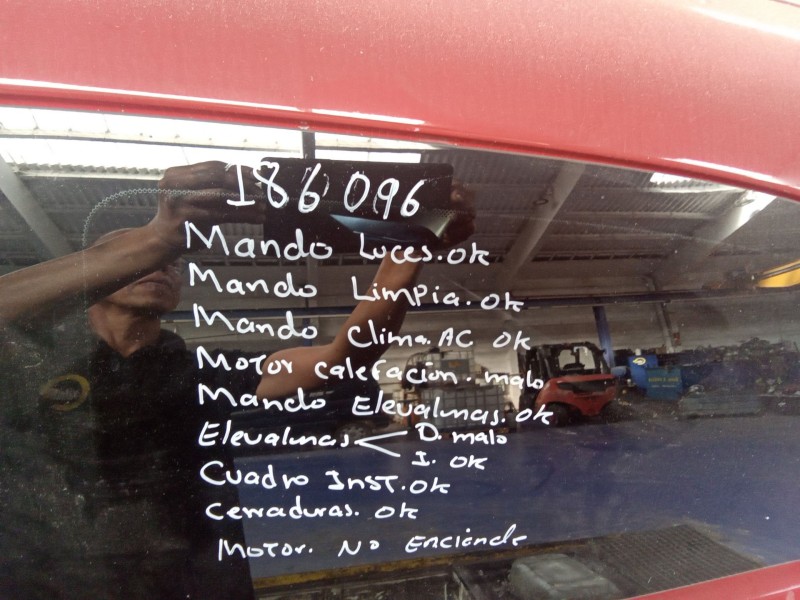 186096
Mando Luces. ok
Mando Limpia. ok
Mando Clima. AC ok
Motor calefacion. malo
Mando Elevalunas. ok
Elevalunas D. malo
I. ok
Cuadro Inst. ok
Cerraduras. ok
Motor. No Enciende